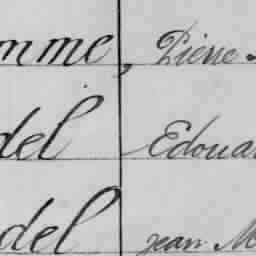 mme, Pierre
del Edouar
del jean M